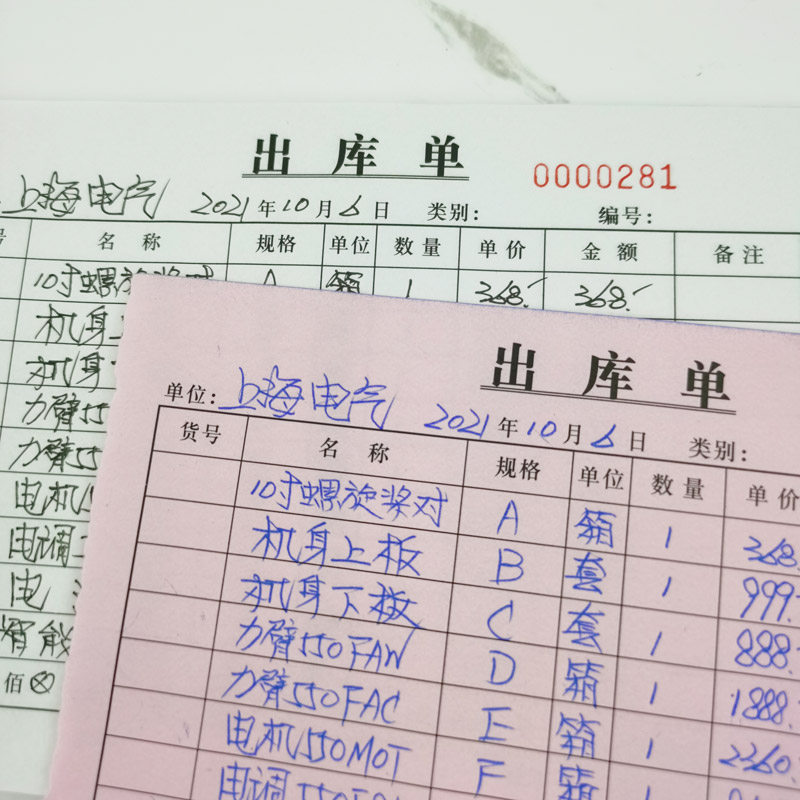 出库单
0000281
上海电气 2021年10月6日 类别: 编号:
号 名称 规格 单位 数量 单价 金额 备注
10寸螺旋桨对 A 箱 1 368. 368.
机身上
机身
力臂550
力臂550
电机
电调
电
智能
佰⊗
出库单
单位: 上海电气 2021年10月6日 类别:
货号 名称 规格 单位 数量 单价
10寸螺旋桨对 A 箱 1 368.
机身上板 B 套 1 999.
机身下板 C 套 1 888.
力臂550FAW D 箱 1 1888.
力臂550FAC E 箱 1 2360.
电机550MOT F 箱 1
电调550